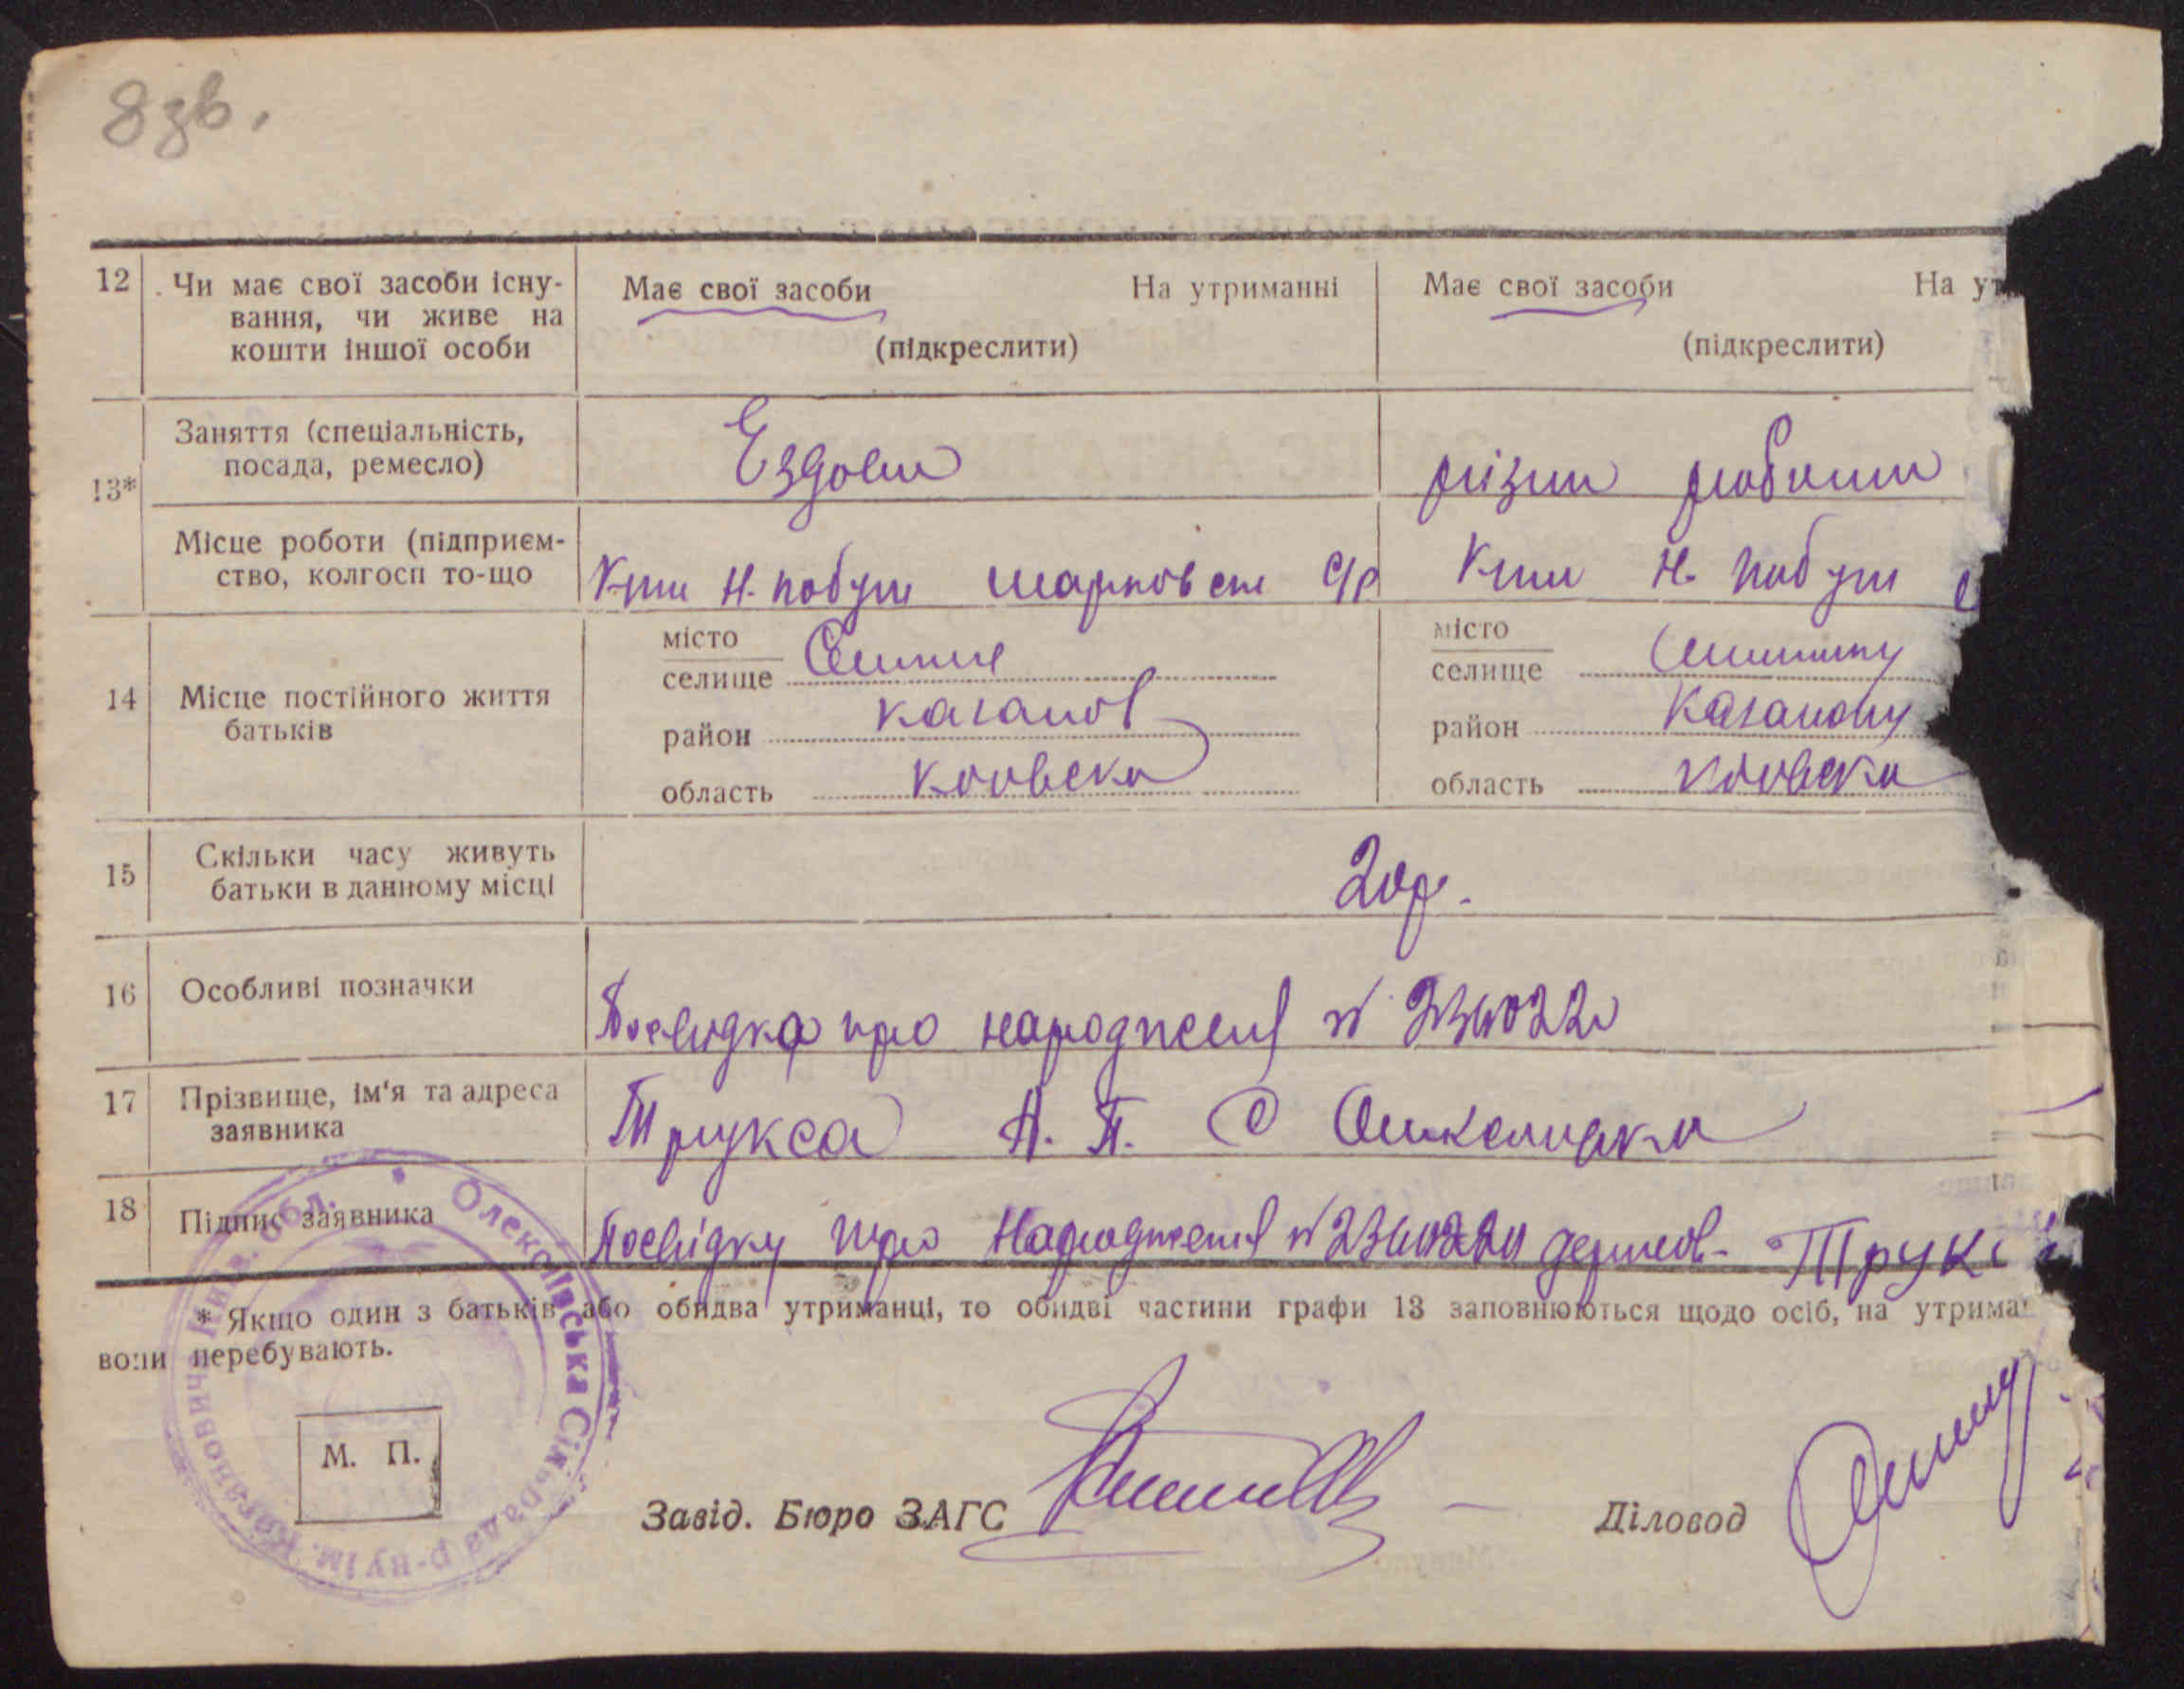 8 зв.
12 Чи має свої засоби існу-
вання, чи живе на
кошти іншої особи
Має свої засоби На утриманні
(підкреслити)
Має свої засоби На ут
(підкреслити)
13*
Заняття (спеціальність,
посада, ремесло)
Ездови
різни роботи
Місце роботи (підприєм-
ство, колгосп то-що
Н. побут С/р
Н. побут
14 Місце постійного життя
батьків
місто
селище
район Каганов
область
місто
селище
район
область
15 Скільки часу живуть
батьки в данному місці
20 р.
16 Особливі позначки
Посвидка про народження №
17 Прізвище, ім‘я та адреса
заявника
Трукса А. П. С
18 Підпис заявника
Посвідку про Народження № держав- Трукс
* Якщо один з батьків або обидва утриманці, то обидві частини графи 13 заповнюються щодо осіб, на утриман
вони перебувають.
Олексіївська Сільрада р-ну ім. Кагановича Київ. обл.
М. П.
Завід. Бюро ЗАГС
Діловод